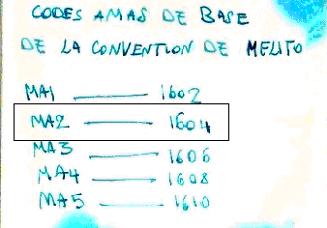 CODES AMAS DE BASE
DE LA CONVENTION DE MELITO
MA1 ——— 1602
MA2 ——— 1604
MA3 ——— 1606
MA4 ——— 1608
MA5 ——— 1610